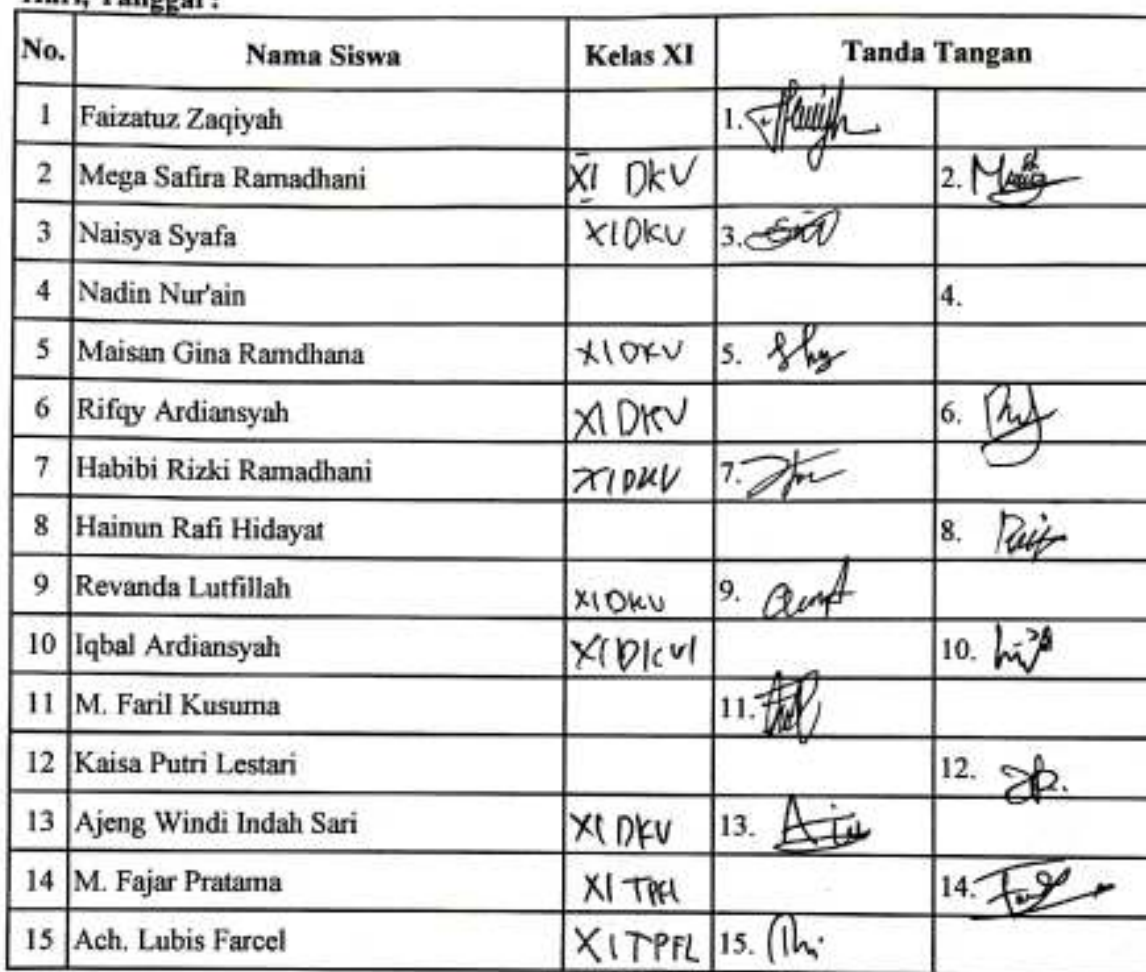 Hari, Tanggal :
No. Nama Siswa Kelas XI Tanda Tangan
1 Faizatuz Zaqiyah 1.
2 Mega Safira Ramadhani XI DKV 2.
3 Naisya Syafa XI DKV 3.
4 Nadin Nur'ain 4.
5 Maisan Gina Ramdhana XI DKV 5.
6 Rifqy Ardiansyah XI DKV 6.
7 Habibi Rizki Ramadhani XI DKV 7.
8 Hainun Rafi Hidayat 8.
9 Revanda Lutfillah XI DKV 9.
10 Iqbal Ardiansyah XI DKV 10.
11 M. Faril Kusuma 11.
12 Kaisa Putri Lestari 12.
13 Ajeng Windi Indah Sari XI DKV 13.
14 M. Fajar Pratama XI TPFL 14.
15 Ach. Lubis Farcel XI TPFL 15.